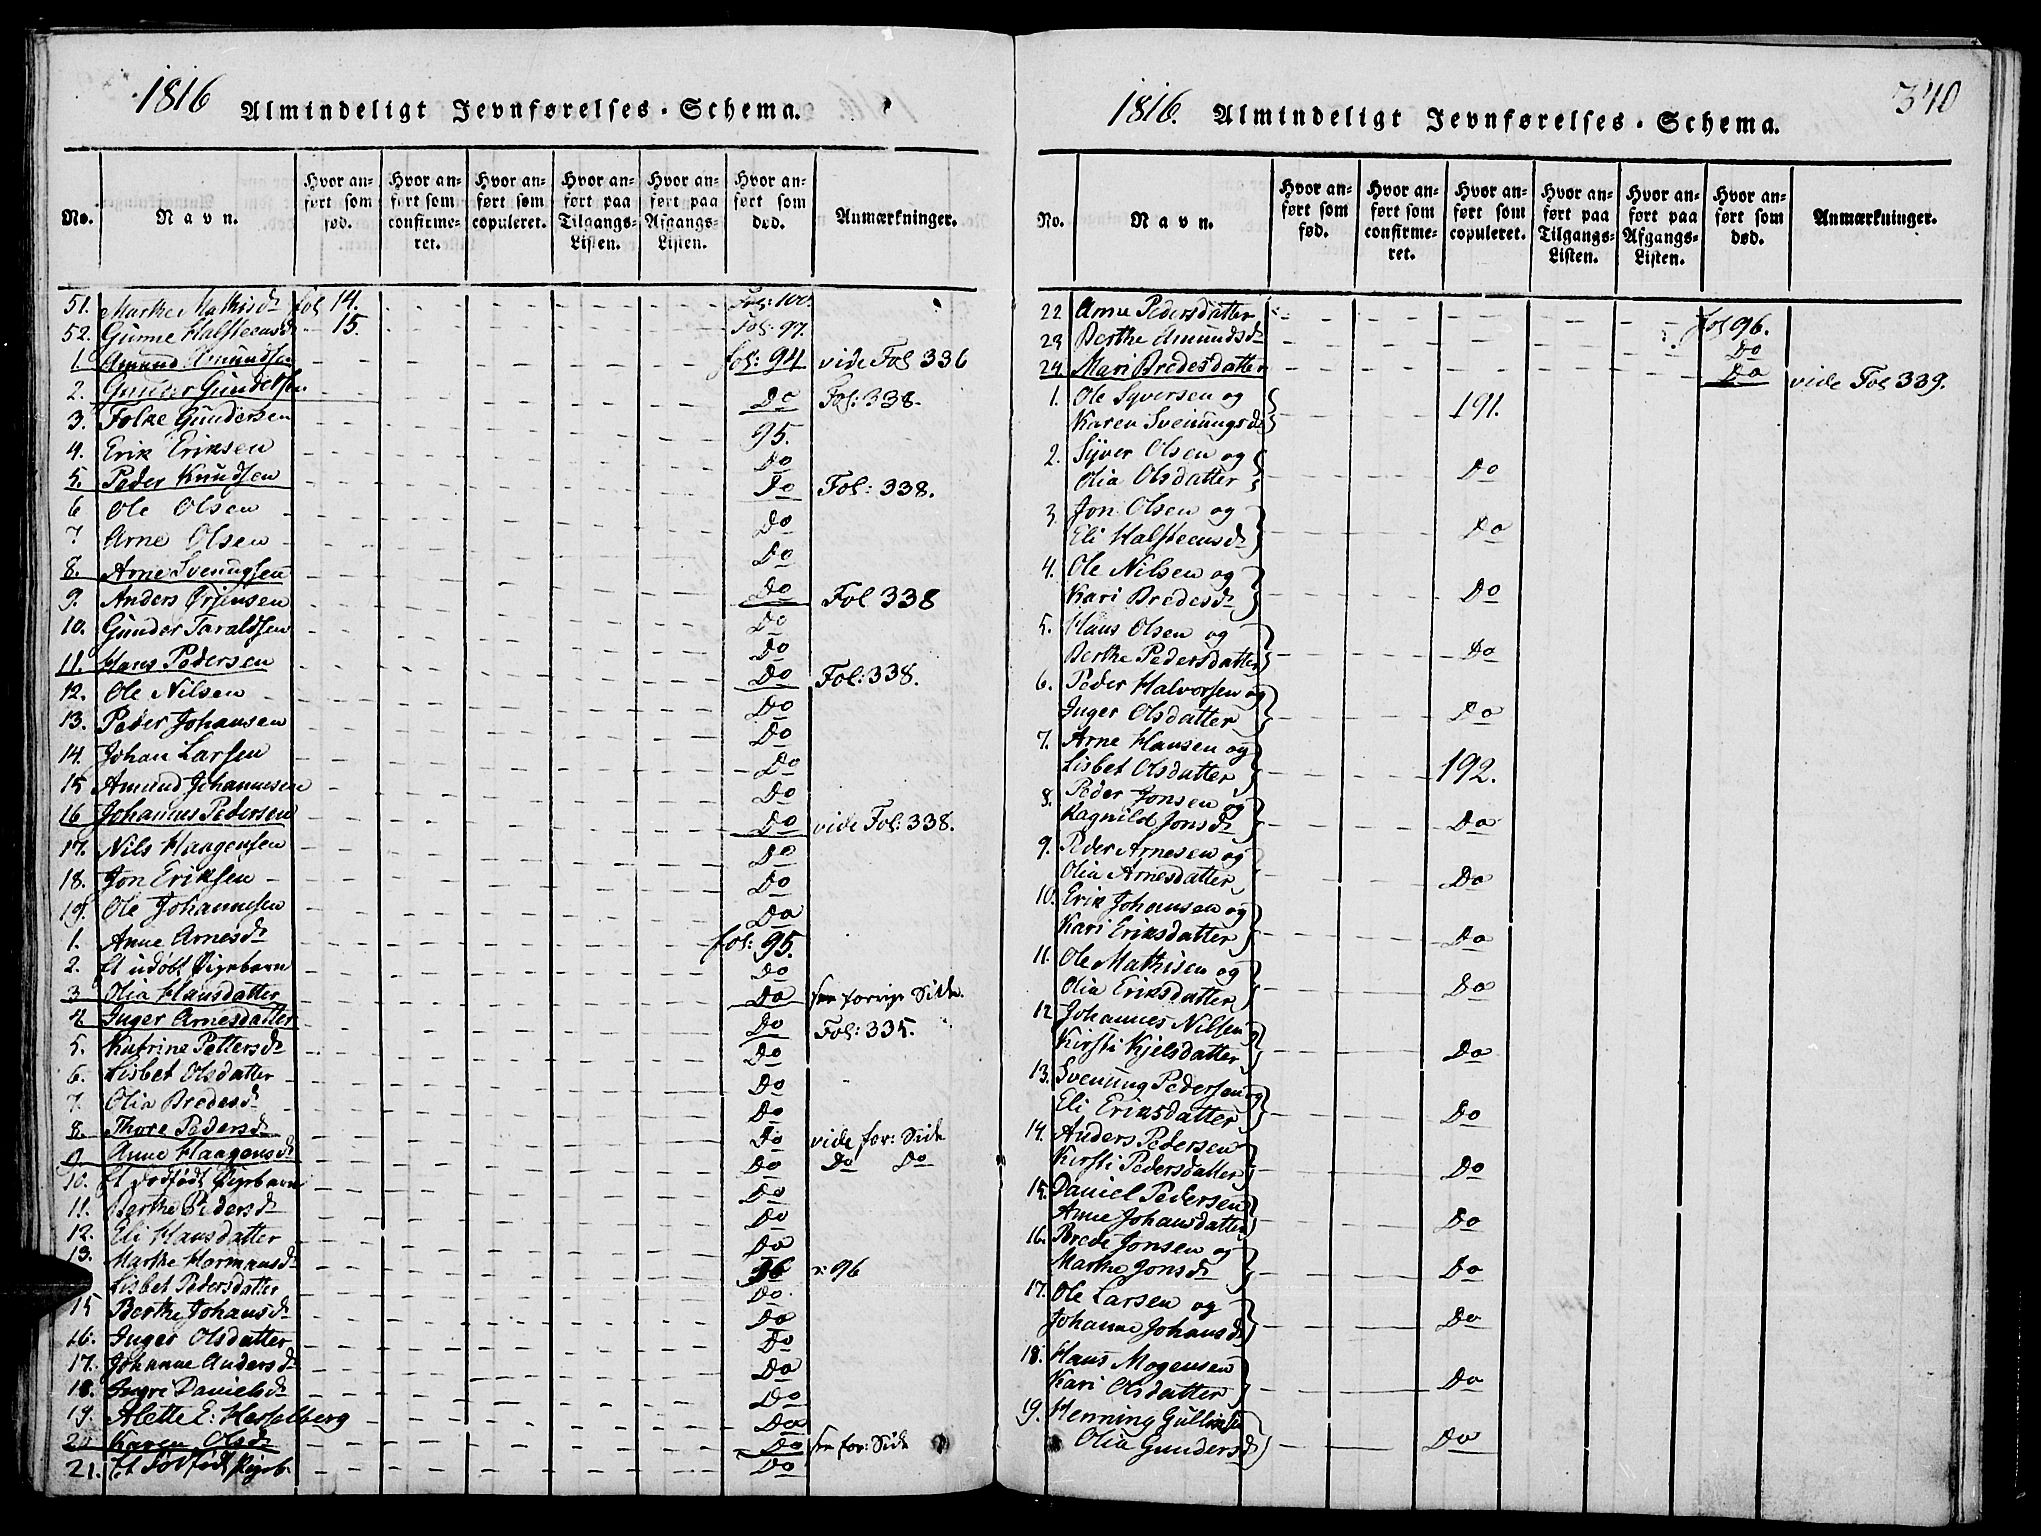 1816 Almindeligt Jevnførelses-Schema.
No. Navn. Hvor anført som fød. Hvor anført som confirmeret. Hvor anført som copuleret. Hvor anført paa Tilgangs-Listen. Hvor anført paa Afgangs-Listen. Hvor anført som død. Anmærkninger.
51. Marthe Mathisd fol 14. Fol: 100.
52. Gunne Halsteensd 15. Fol: 97.
1. Amund Amundsen fol: 94 vide Fol 336
2. Gunder Gundersen Do Fol: 338.
3. Folke Gundersen 95.
4. Erik Eriksen Do
5. Peder Knudsen Do Fol: 338.
6 Ole Olsen Do
7 Arne Olsen Do
8. Arne Svenugsen Do Fol 338
9. Anders Ørjensen Do
10. Gunder Taraldsen Do
11. Hans Pedersen Do Fol: 338.
12. Ole Nilsen Do
13. Peder Johansen Do
14. Johan Larsen Do
15 Amund Johannesen Do
16 Johannes Pedersen Do vide Fol: 338.
17. Nils Haagensen Do
18. Jon Eriksen Do
19. Ole Johannesen Do
1. Anne Arnesd fol: 95.
2. Et udøbt Pigebarn Do
3 Olia Hansdatter Do see forrige Side.
4 Inger Arnesdatter Do Fol: 335.
5. Katrine Pettersd Do
6. Lisbet Olsdatter Do
7. Olia Bredesd Do
8. Thore Pedersd Do vide for: Side
9. Anne Haagensd Do Do Do
10. Et dødfødt Pigebarn Do
11. Berthe Pedersd Do
12. Eli Hansdatter Do
13. Marthe Hermansd 96 : 96
Lisbet Pedersdatter Do
15 Berthe Johansd Do
16. Inger Olsdatter Do
17. Johanne Andersd Do
18. Ingri Danielsd Do
19. Alette E: Hesselberg Do
20 Karen Olsd Do see for: Side
21. Et Dødfødt Pigeb. Do
1816. Almindeligt Jevnførelses-Schema. 340
No. Navn. Hvor anført som fød. Hvor anført som confirmeret. Hvor anført som copuleret. Hvor anført paa Tilgangs-Listen. Hvor anført paa Afgangs-Listen. Hvor anført som død. Anmærkninger.
22 Anne Pedersdatter fol 96.
23 Berthe Amundsd Do
24. Mari Bredesdatter Do vide Fol 339.
1. Ole Syversen og
Karen Sveinungsd 191.
2. Syver Olsen og
Olia Olsdatter Do
3. Jon Olsen og
Eli Halsteensd Do
4. Ole Nilsen og
Kari Bredesd Do
5. Hans Olsen og
Berthe Pedersdatter Do
6. Peder Halvorsen og
Inger Olsdatter Do
7. Arne Hansen og
Lisbet Olsdatter 192.
8. Peder Jonsen og
Ragnild Jonsd Do
9. Peder Arnesen og
Olia Arnesdatter Do
10. Erik Johansen og
Kari Eriksdatter Do
11. Ole Mathisen og
Olia Eriksdatter Do
12 Johannes Nilsen og
Kirsti Kjelsdatter Do
13. Svenung Pedersen og
Eli Eriksdatter Do
14. Anders Pedersen
Kirsti Pedersdatter Do
15. Daniel Pedersen
Anne Johansdatter Do
16. Brede Jonsen og
Marthe Jonsd Do
17. Ole Larsen og
Johanne Johansd Do
18. Hans Mogensen
Kari Olsdatter Do
19. Henning Gulliksen
Olia Gundersd Do